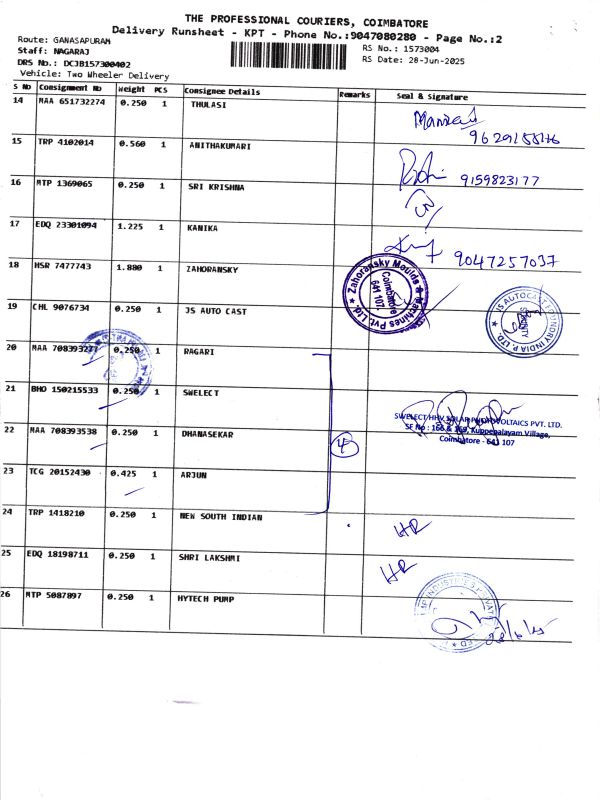 THE PROFESSIONAL COURIERS, COIMBATORE
Delivery Runsheet - KPT - Phone No.:9047080280 - Page No.:2
Route: GANASAPURAM
Staff: NAGARAJ
DRS No.: DCJB157300402
Vehicle: Two Wheeler Delivery
RS No.: 1573004
RS Date: 28-Jun-2025
S No Consignment No Weight PCS Consignee Details Remarks Seal & Signature
14 MAA 651732274 0.250 1 THULASI
9629155176
15 TRP 4102014 0.560 1 ANITHAKUMARI
9159823177
16 MTP 1369065 0.250 1 SRI KRISHNA
17 EDQ 23301094 1.225 1 KANIKA
9047257037
18 HSR 7477743 1.880 1 ZAHORANSKY
Zahoransky Moulds & Machines Pvt. Ltd.
Coimbatore
641 107
19 CHL 9076734 0.250 1 JS AUTO CAST
JS AUTOCAST FOUNDRY INDIA P. LTD.
SECURITY
20 MAA 708393277 0.250 1 RAGARI
21 BHO 150215533 0.250 1 SWELECT
SWELECT HHV SOLAR PHOTOVOLTAICS PVT. LTD.
SF No : 166 & 169, Kuppepalayam Village,
Coimbatore - 641 107
22 MAA 708393538 0.250 1 DHANASEKAR
4
23 TCG 20152430 0.425 1 ARJUN
24 TRP 1418210 0.250 1 NEW SOUTH INDIAN
HR
25 EDQ 18198711 0.250 1 SHRI LAKSHMI
HR
26 MTP 5087897 0.250 1 HYTECH PUMP